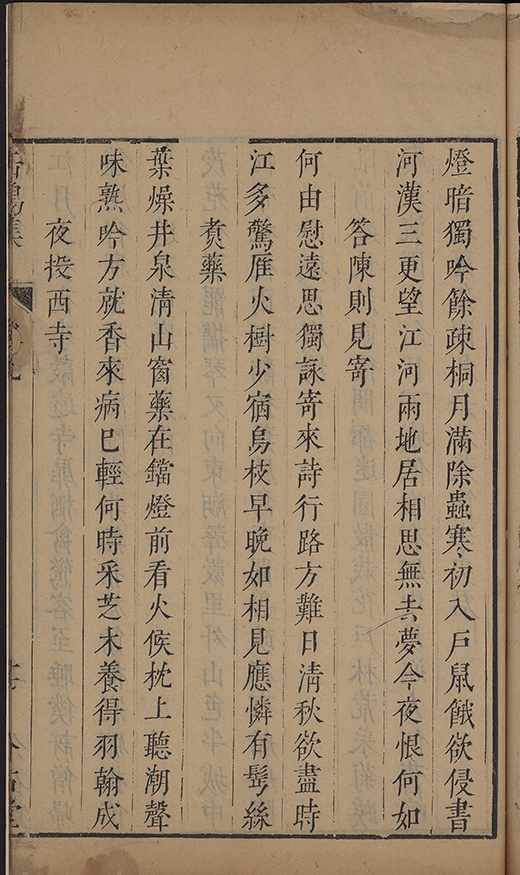 燈暗獨吟餘疎桐月滿除蟲寒初入戶鼠餓欲侵書
河漢三更望江河兩地居相思無去夢今夜恨何如
答陳則見寄
何由慰遠思獨詠寄來詩行路方難日清秋欲盡時
江多驚雁火樹少宿烏枝早晚如相見應憐有鬂絲
煑藥
葉燥井泉清山窗藥在鐺燈前看火候枕上聽潮聲
味熟吟方就香來病已輕何時采芝朮養得羽翰成
夜投西寺
集